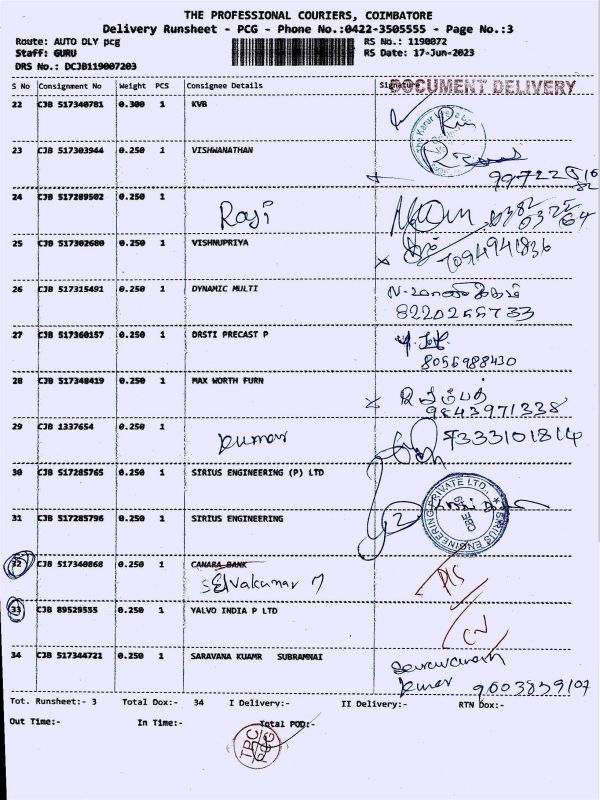 THE PROFESSIONAL COURIERS, COIMBATORE
Delivery Runsheet - PCG - Phone No.:0422-3505555 - Page No.:3
Route: AUTO DLY pcg RS No.: 1190072
Staff: GURU RS Date: 17-Jun-2023
DRS No.: DCJB119007203
S No Consignment No Weight PCS Consignee Details Signature
DOCUMENT DELIVERY
22 CJB 517340781 0.300 1 KVB
23 CJB 517303944 0.250 1 VISHWANATHAN
24 CJB 517289502 0.250 1
Raji
25 CJB 517302680 0.250 1 VISHNUPRIYA
7094941836
26 CJB 517315491 0.250 1 DYNAMIC MULTI
8220255733
27 CJB 517360157 0.250 1 DRSTI PRECAST P
8056988430
28 CJB 517348419 0.250 1 MAX WORTH FURN
9843971338
29 CJB 1337654 0.250 1
kumar 9333101814
30 CJB 517285765 0.250 1 SIRIUS ENGINEERING (P) LTD
SIRIUS ENGINEERING PRIVATE LTD.,
CBE
31 CJB 517285796 0.250 1 SIRIUS ENGINEERING
32 CJB 517340868 0.250 1 CANARA BANK
Selvakumar
33 CJB 89529555 0.250 1 YALVO INDIA P LTD
34 CJB 517344721 0.250 1 SARAVANA KUAMR SUBRAMNAI
kumar 9003839107
Tot. Runsheet:- 3 Total Dox:- 34 I Delivery:- II Delivery:- RTN Dox:-
Out Time:- In Time:- Total POD:-
TPC
PCG